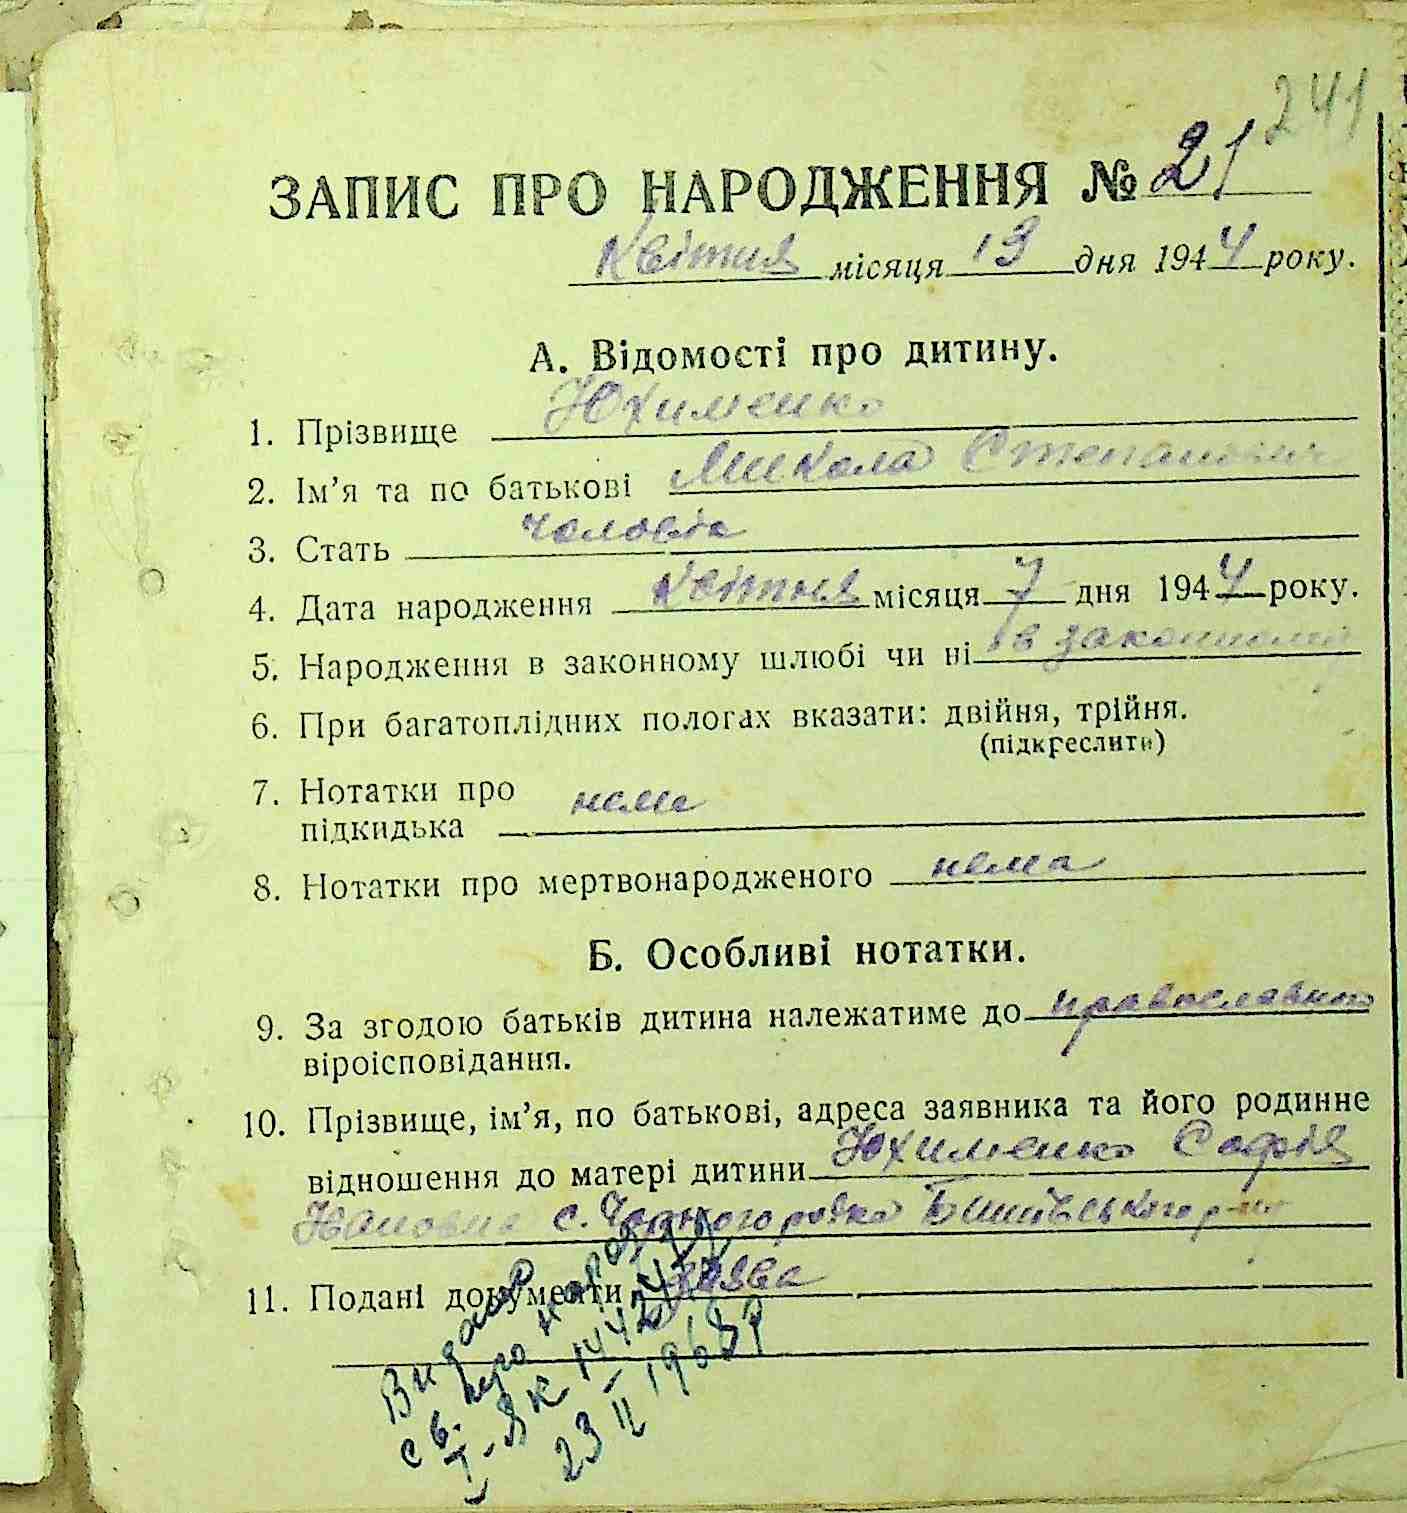 241
ЗАПИС ПРО НАРОДЖЕННЯ № 21
Квітня місяця 13 дня 1944 року.
А. Відомості про дитину.
1. Прізвище Юхименко
2. Ім'я та по батькові Микола Степанович
3. Стать чоловіча
4. Дата народження Квітня місяця 7 дня 1944 року.
5. Народження в законному шлюбі чи ні в законному
6. При багатоплідних пологах вказати: двійня, трійня.
(підкреслити)
7. Нотатки про
підкидька нема
8. Нотатки про мертвонародженого нема
Б. Особливі нотатки.
9. За згодою батьків дитина належатиме до православного
віроісповідання.
10. Прізвище, ім'я, по батькові, адреса заявника та його родинне
відношення до матері дитини Юхименко Софія
с. Чорногородка р-ну
11. Подані документи заява
Видано
св. про народж
I-ЯК
23 II 1968 р